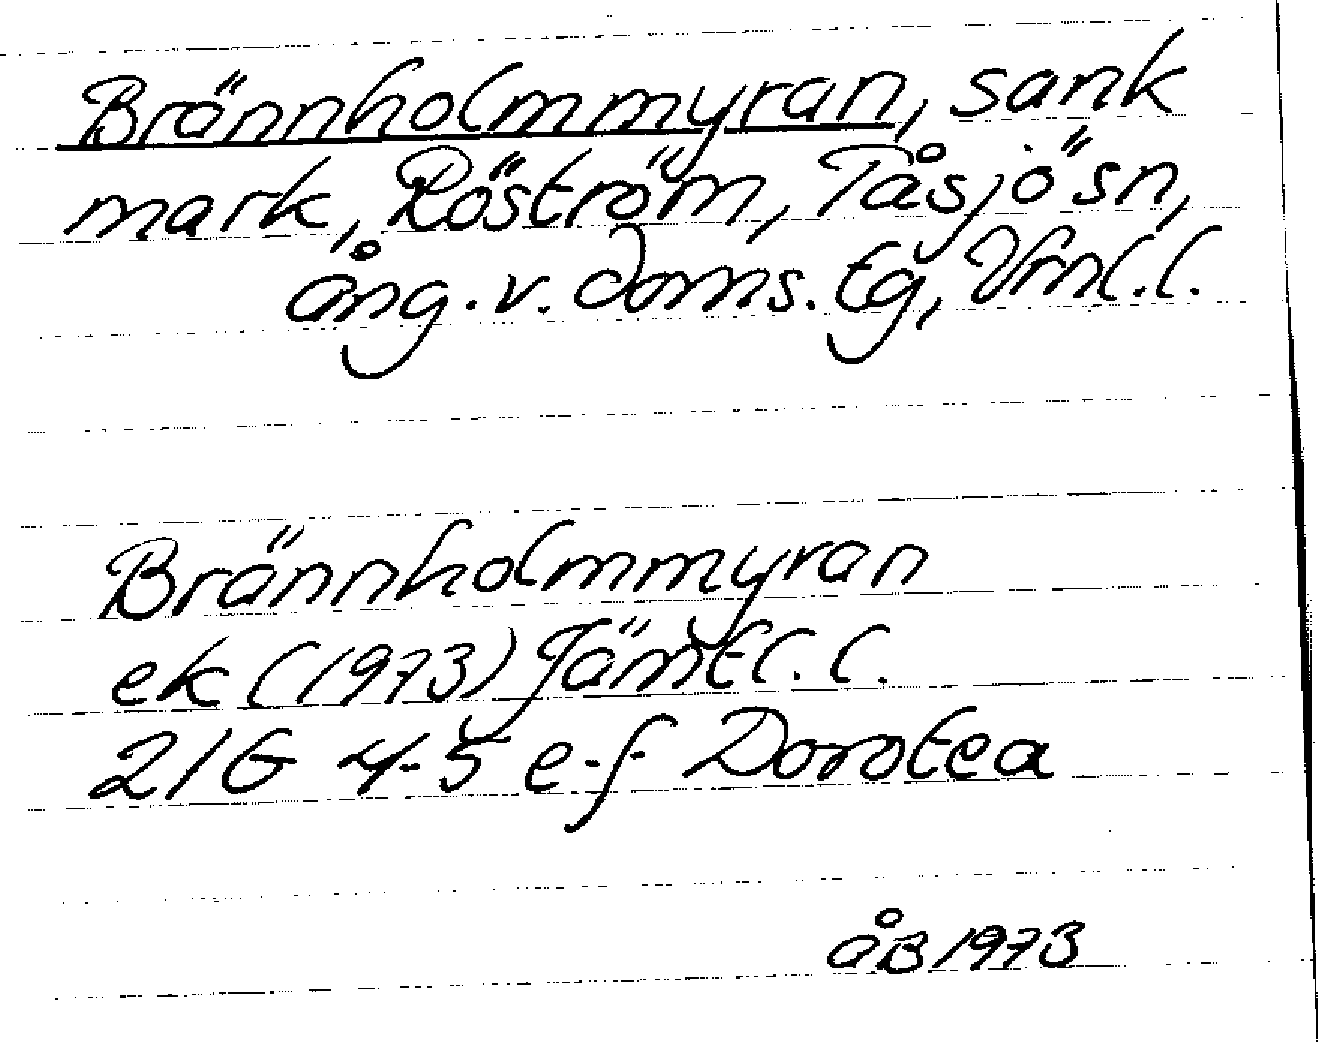 Brännholmmyran, sank
mark, Röström, Tåsjö sn,
Ång. v. doms. tg, Vrnl. l.
Brännholmmyran
ek (1973) Jämtl. l.
21G 4-5 e-f Dorotea
ÅB 1973